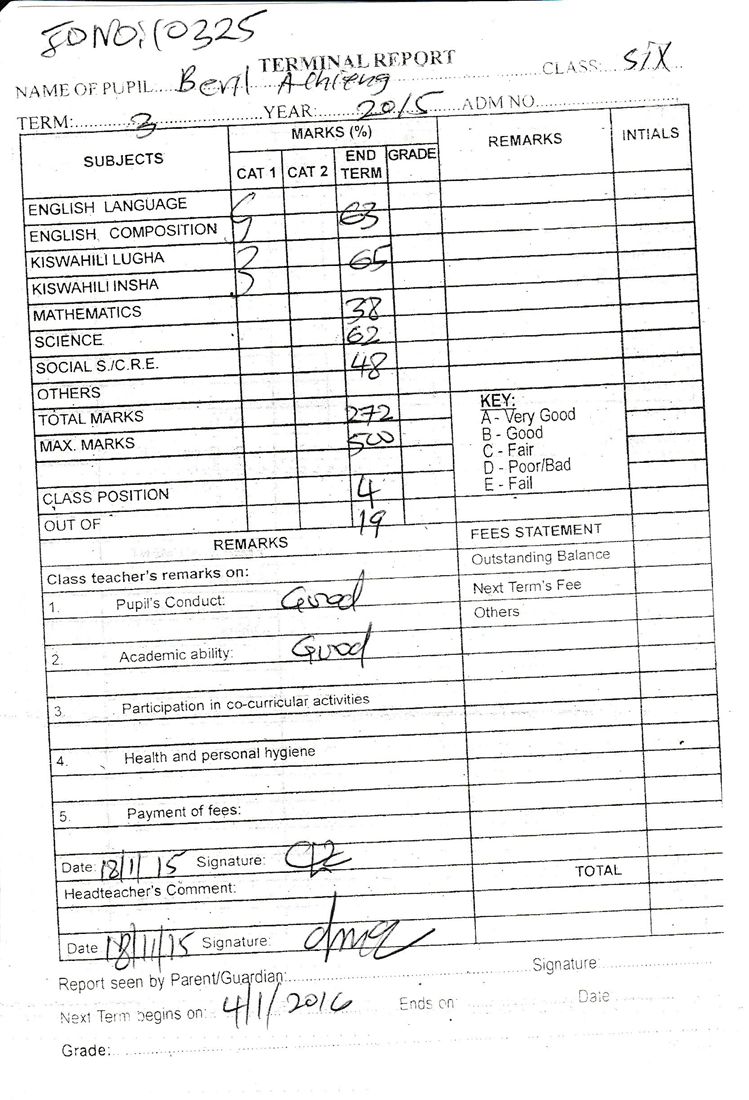 ID NO: 10325
TERMINAL REPORT
NAME OF PUPIL: Beryl Achieng CLASS: SIX
TERM: 3 YEAR: 2015 ADM NO
SUBJECTS MARKS (%) REMARKS INTIALS
CAT 1 CAT 2 END TERM GRADE
ENGLISH LANGUAGE 63
ENGLISH COMPOSITION
KISWAHILI LUGHA 65
KISWAHILI INSHA
MATHEMATICS 38
SCIENCE 62
SOCIAL S./C.R.E. 48
OTHERS
TOTAL MARKS 272
MAX. MARKS 500
KEY:
A - Very Good
B - Good
C - Fair
D - Poor/Bad
E - Fail
CLASS POSITION 4
OUT OF 19
REMARKS
FEES STATEMENT
Outstanding Balance
Next Term's Fee
Others
Class teacher's remarks on:
1. Pupil's Conduct: Good
2. Academic ability: Good
3. Participation in co-curricular activities
4. Health and personal hygiene
5. Payment of fees:
Date: 18/11/15 Signature:
TOTAL
Headteacher's Comment:
Date 18/11/15 Signature:
Report seen by Parent/Guardian: Signature
Next Term begins on: 4/1/2016 Ends on Date
Grade: